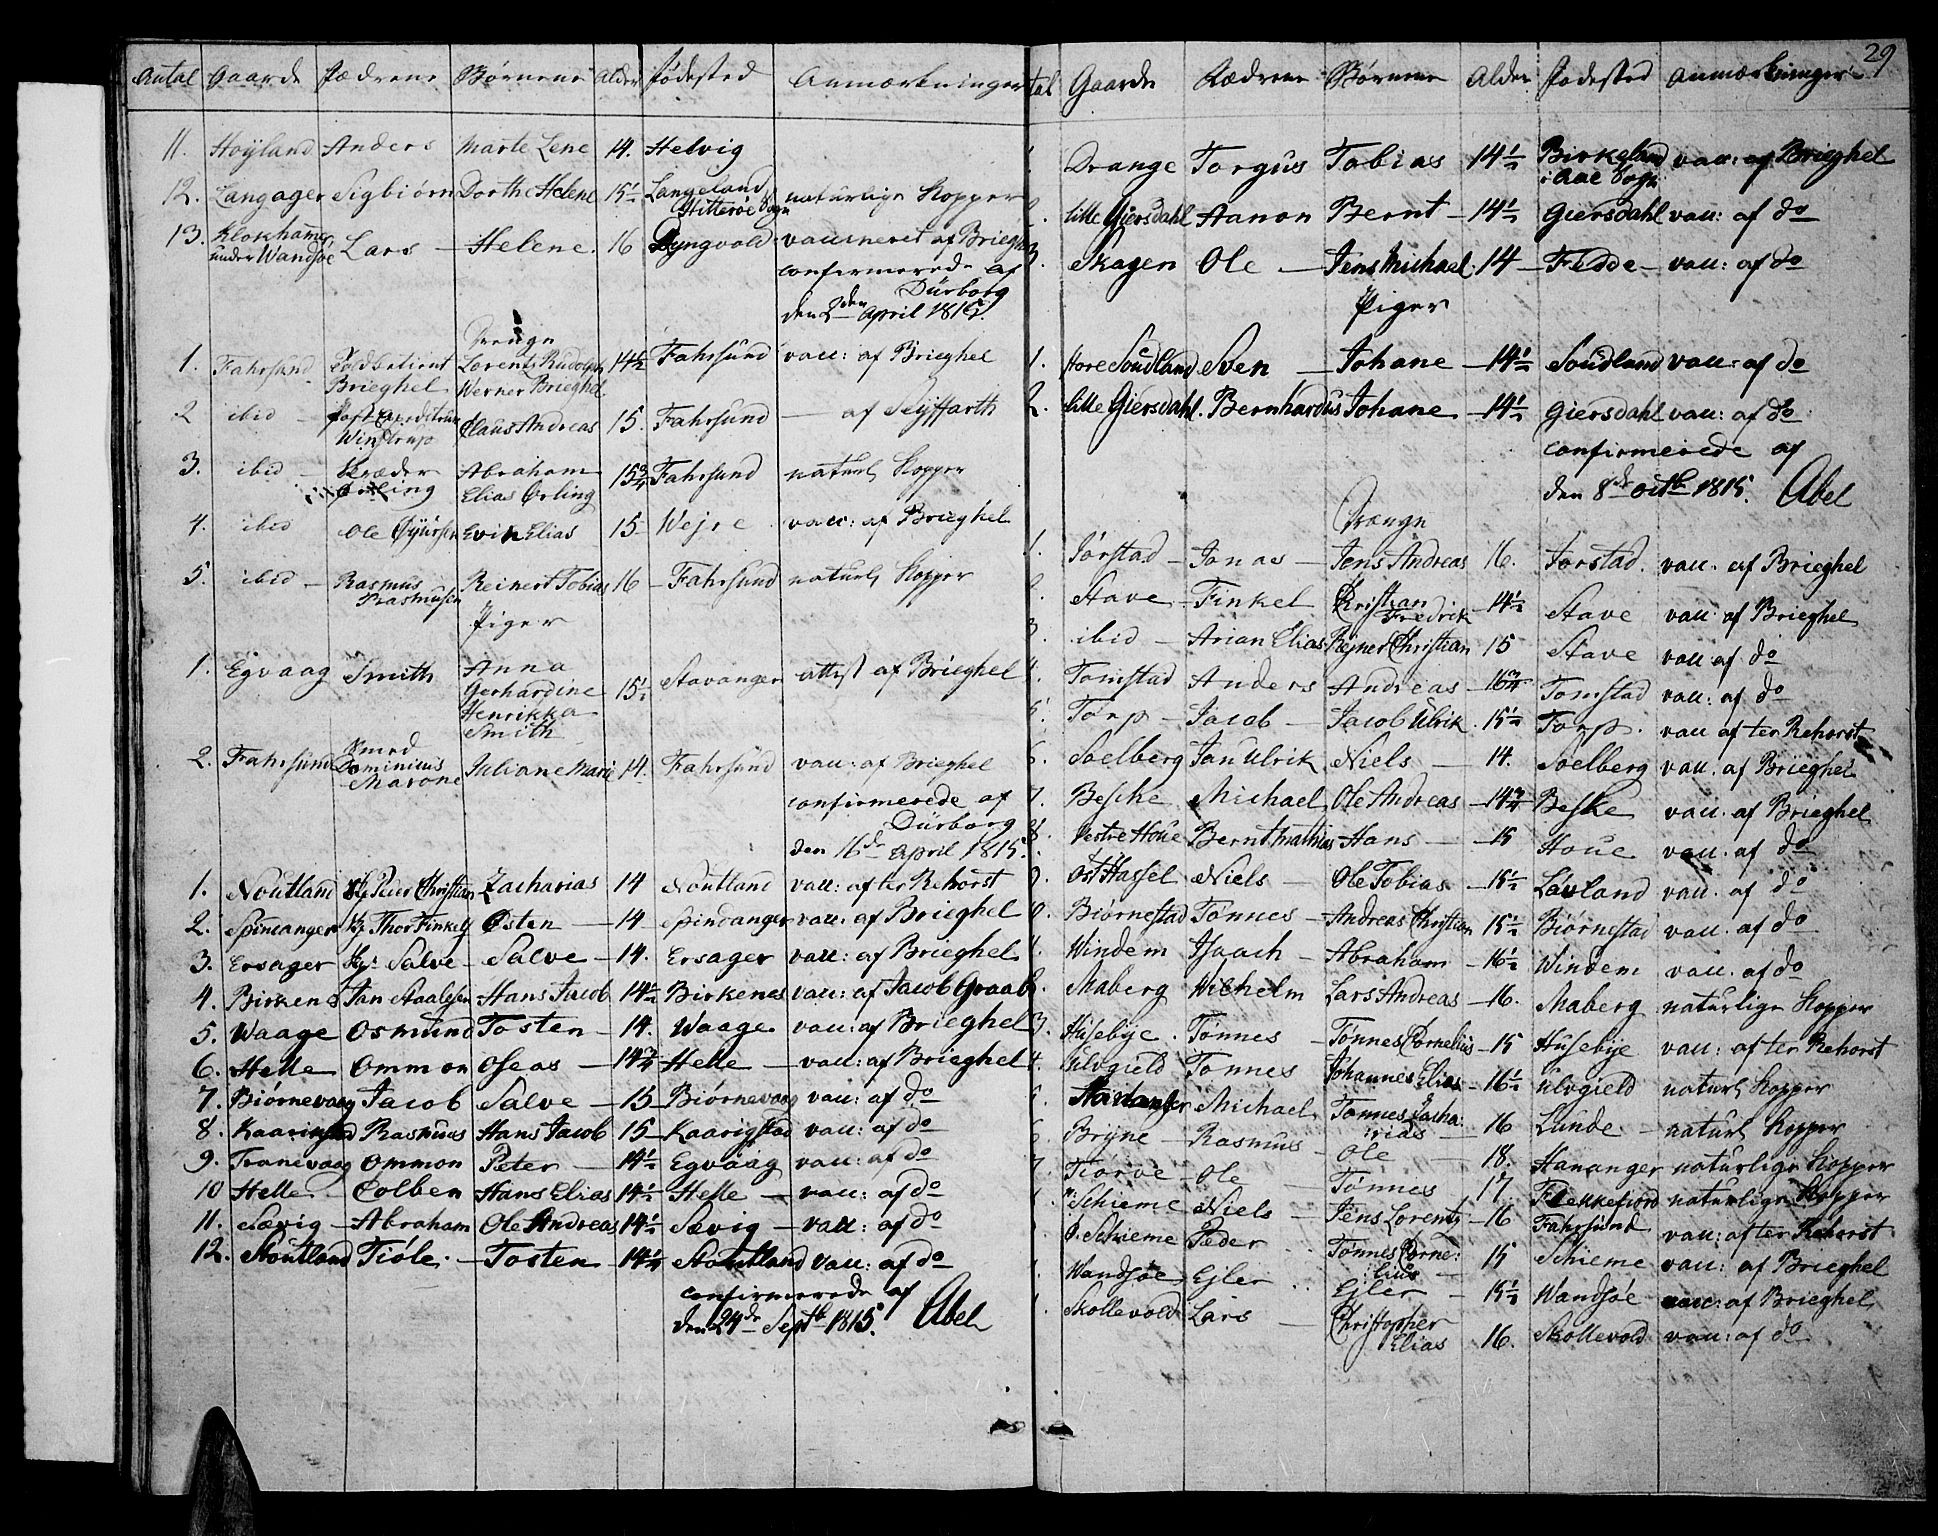 Antal Gaarde Fædrene Børnene Alder Fødested Anmærkninger
11. Høyland Anders Marte Lene 14. Helvig
12. Langager Sigbiørn Dorthe Helene 15½ Langeland Hitterøe Sogn naturlige Kopper
13. Klokhamer under Wandsøe Lars Helene. 16 Lyngvold vaccineret af Brieghel
confirmerede af
Dürborg
den 2den April 1815.
Drenge
1. Fahrsund Brieghel Lorentz Rudolph Werner Brieghel 14½ Fahrsund vacc: af Brieghel
2 ibid Winstrup Claus Andreas 15. Fahrsund af Seyffarth
3. ibid Skræder Ørling Abraham Elias Ørling 15¾ Fahrsund naturl. Kopper
4. ibid Ole Evin Elias 15 Wejre vacc: af Brieghel
5. ibid Rasmus Rasmusen Reinert Tobias 16 Fahrsund naturl. Kopper
Piger
1. Egvaag Smith Anna Gerhardine Henrikka Smith 15½ Stavanger attest af Brieghel
2. Fahrsund Dominicus Marone Juliane Marie 14. Fahrsund vacc: af Brieghel
confirmerede af
Dürborg
den 16de April 1815.
1. Noutland Peter Christian Zacharias 14 Noutland vacc: af ter Rehorst
2. Spindanger Thor Finkel Østen 14 Spindanger vacc: af Brieghel
3. Ersager Salve Salve 14. Ersager vacc: af Brieghel
4. Birkenes Jan Staalesen Hans Jacob 14½ Birkenes vacc: af Jacob Graab
5. Waage Osmund Tosten 14. Waage vacc: af Brieghel
6. Helle Ommon Oseas 14¾ Helle vacc: af Brieghel
7. Biørnevaag Jacob Salve 15 Biørnevaag vacc: af do
8. Kaarigstad Rasmus Hans Jacob 15 Kaarigstad vacc: af do
9. Tranevaag Ommon Peter 14½ Egvaag vacc: af do
10 Helle Colben Hans Elias 14½ Helle vacc: af do
11. Sævig Abraham Ole Andreas 14½ Sævig vacc: af do
12. Stoutland Tiøle. Tosten 14¼ Stoutland vacc: af do
confirmerede af
den 24de Septb 1815. Abel
29
tal Gaarde Fædrene Børnene Alder Fødested Anmærkninger
Drange Torgus Tobias 14½ Birkeland i Aae Sogn vacc: af Brieghel
Lille Giersdahl Aanon Bernt 14½ Giersdahl vacc: af do
3. Skagen Ole Jens Michael 14 Fedde vacc: af do
Piger
1. Store Soudland Sven Johane 14½ Soudland vacc: af do
2. Lille Giersdahl. Bernhardus Johane 14½ Giersdahl vacc: af do
confirmerede af
den 8de octb 1815. Abel
Drænge
1. Jørstad Jonas Jens Andreas 16. Jørstad. vacc: af Brieghel
2. Stave Finkel Christian Fredrik 14½ Stave vacc: af Brieghel
3. ibid Arian Elias Rejner Christian 15 Stave vacc af do
4. Tomstad Anders Andreas 16¾ Tomstad vacc: af do
5. Torp Jacob Jacob Ulrik 15½ Torp. vacc af ter Rehorst
6. Soelberg Jan Ulrik Niels 14. Soelberg vacc. af Brieghel
7. Beske Michael Ole Andreas 14¾ Beske vacc. af Brieghel
8. Vestre Houe Bernt Mathias Hans 15 Houe vacc. af do
9. Øst Hassel Niels Ole Tobias 15½ Louland vacc. af do
0. Biørnestad Tønnes Andreas Christian 15½ Biørnestad vacc. af do
1. Windem Isaach Abraham 16½ Windem vacc. af do
2. Maberg Wilhelm Lars Andreas 16. Maberg naturlige Kopper
3. Husebye. Tønnes Tønnes Cornelius 15 Husebye vacc: af ter Rehorst
4. Ulvgield Tønnes Johannes Elias 16½ Ulvgield naturl Kopper
5. Michael Tønnes Zacharias 16 Lunde naturl Kopper
6. Bryne Rasmus Ole 18. Hananger naturlige Kopper
7. Tiørve Ole Tønnes 17. Flekkefiord naturlige Kopper
Schieme Niels Jens Lorentz 16 Fahrsund vacc: af ter Rehorst
Ø. Schieme Peder Tønnes Cornelius 15 Schieme vacc: af Brieghel
Wandsøe Ejler Ejler 15½ Wandsøe vacc: af Brieghel
Skollevold Lars Christopher Elias 16. Skollevold vacc: af do